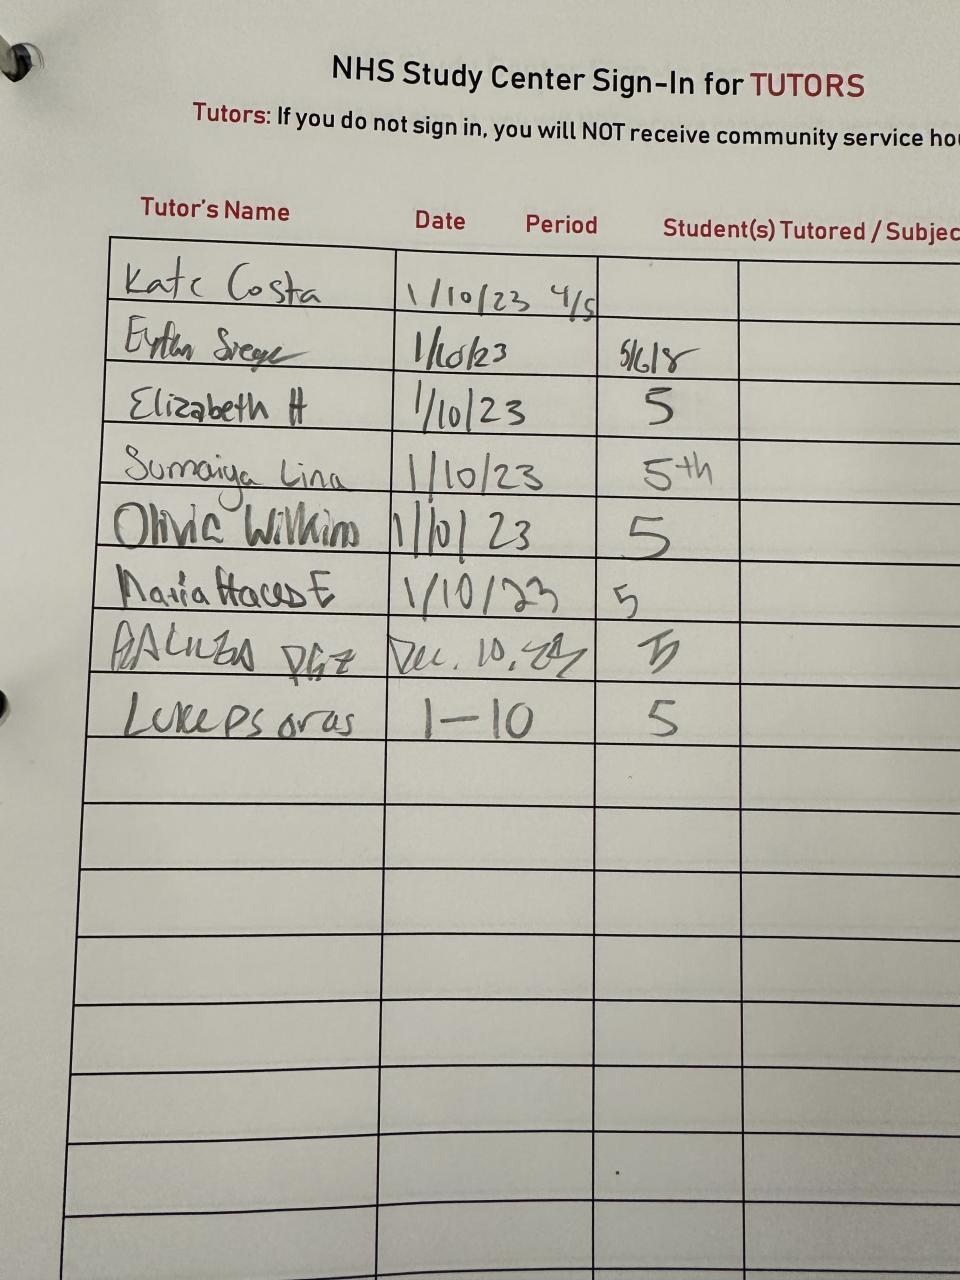 NHS Study Center Sign-In for TUTORS
Tutors: If you do not sign in, you will NOT receive community service hou
Tutor's Name Date Period Student(s) Tutored / Subjec
Kate Costa 1/10/23 4/5
1/10/23 5/6/8
Elizabeth H 1/10/23 5
Sumaiya Lina 1/10/23 5th
Olivia Wilkins 1/10/23 5
Maria 1/10/23 5
Dec. 10,
Luke 1-10 5